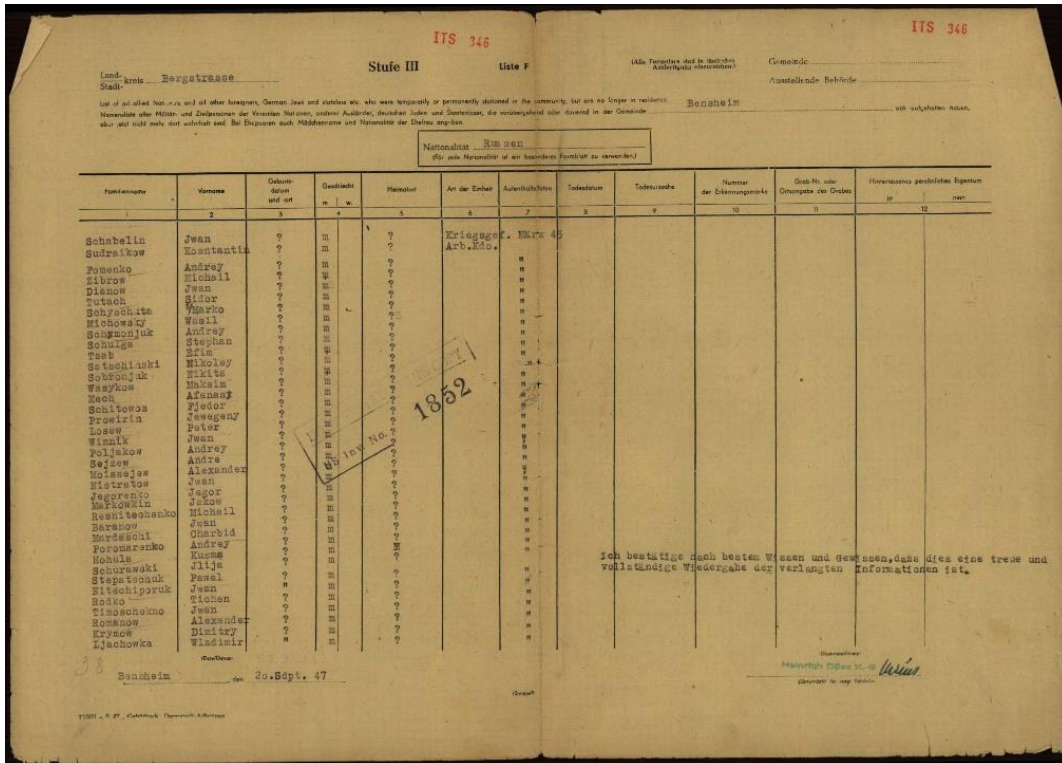 ITS 346
ITS 346
Stufe III
Liste F
(Alle Formulare sind in deutscher
Gemeinde
Land-
Stadt-
kreis Bergstrasse
Ausstellende Behörde
List of all allied Nationals and all other foreigners, German Jews and stateless etc. who were temporarily or permanently stationed in the community, but are no longer in residence.
Namensliste aller Militär- und Zivilpersonen der Vereinten Nationen, anderer Ausländer, deutschen Juden und Staatenloser, die vorübergehend oder dauernd in der Gemeinde Bensheim sich aufgehalten haben,
aber jetzt nicht mehr dort wohnhaft sind. Bei Ehepaaren auch Mädchenname und Nationalität der Ehefrau angeben.
Nationalität Russen
(Für jede Nationalität ist ein besonderes Formblatt zu verwenden.)
Familienname Vorname Geburtsdatum und -ort Geschlecht m. w. Heimatort Art der Einheit Aufenthaltsdaten Todesdatum Todesursache Nummer der Erkennungsmarke Grab Nr. oder Ortsangabe des Grabes Hinterlassenes persönliches Eigentum ja nein
1 2 3 4 5 6 7 8 9 10 11 12
Schabelin Jwan ? m ? Kriegsgef. März 45
Sudraikow Kosntantin ? m ? Arb.Kdo.
Fomenko Andrey ? m ? "
Zibrow Michail ? m ? "
Dianow Jwan ? m ? "
Tutach Sidor ? m ? "
Schyschita Marko ? m ? "
Michowsky Wasil ? m ? "
Schymonjuk Andrey ? m ? "
Schulga Stephan ? m ? "
Tsab Efim ? m ? "
Satschinski Nikoley ? m ? "
Sobronjuk Nikita ? m ? "
Wasykow Maksim ? m ? "
Mech Afanasy ? m ? "
Schitowos Fjedor ? m ? "
Prowirin Jewegeny ? m ? "
Losew Peter ? m ? "
Winnik Jwan ? m ? "
Poljakow Andrey ? m ? "
Sejzew Andre ? m ? "
Moissejew Alexander ? m ? "
Nistratow Jwan ? m ? "
Jegorenko Jegor ? m ? "
Markowkin Jakow ? m ? "
Resnitschenko Michail ? m ? "
Baranow Jwan ? m ? "
Mardaschi Charbid ? m ? "
Poromarenko Andrey ? m "
Hohula Kusma ? m ? "
Schurawski Jlija ? m ? "
Stepatschuk Pawel ? m ? "
Nitschiporuk Jwan " m ? "
Rodko Tichon ? m ? "
Timoschekno Jwan ? m ? "
Romanow Alexander ? m ? "
Krymow Dimitry ? m ? "
Ljachowka Wladimir " m ? "
1852
Inv. No.
Ich bestätige nach bestem Wissen und Gewissen,dass dies eine treue und
vollständige Wiedergabe der verlangten Informationen ist.
38
Bensheim den 20.Sept. 47
Heinrich